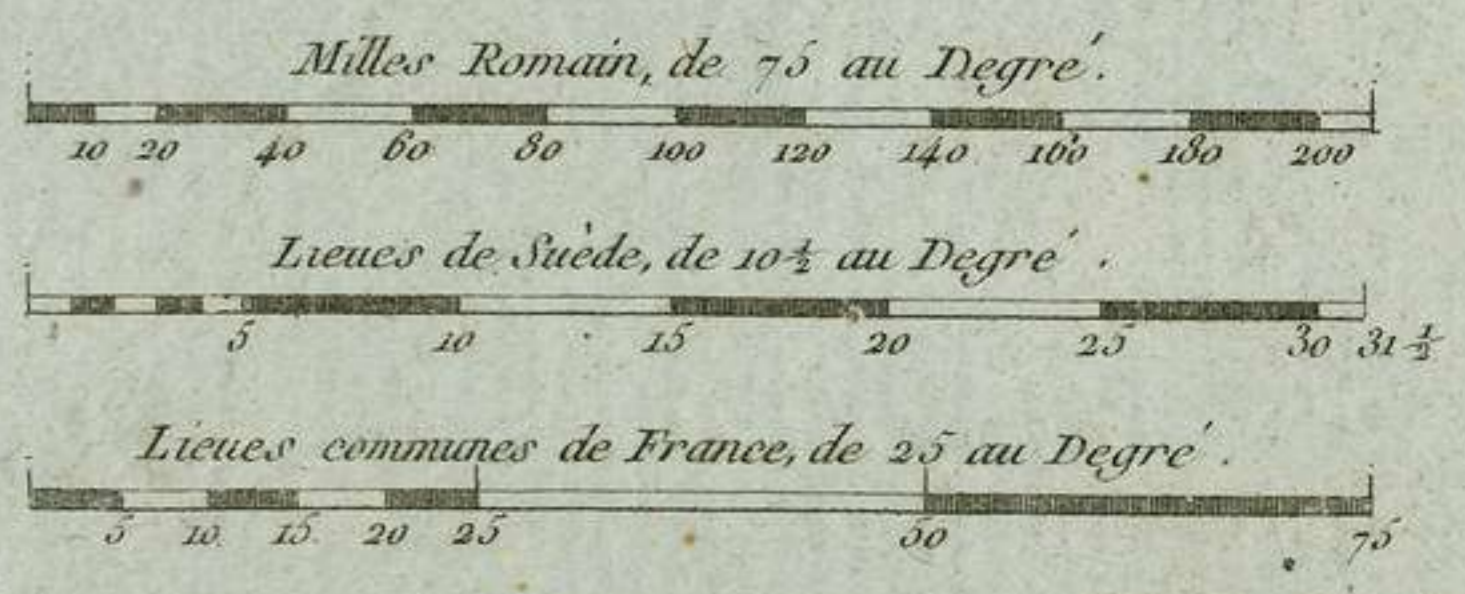 Milles Romain, de 75 au Degré.
10 20 40 60 80 100 120 140 160 180 200
Lieues de Suède, de 10½ au Degré.
5 10 15 20 25 30 31½
Lieues communes de France, de 25 au Degré.
5 10 15 20 25 50 75